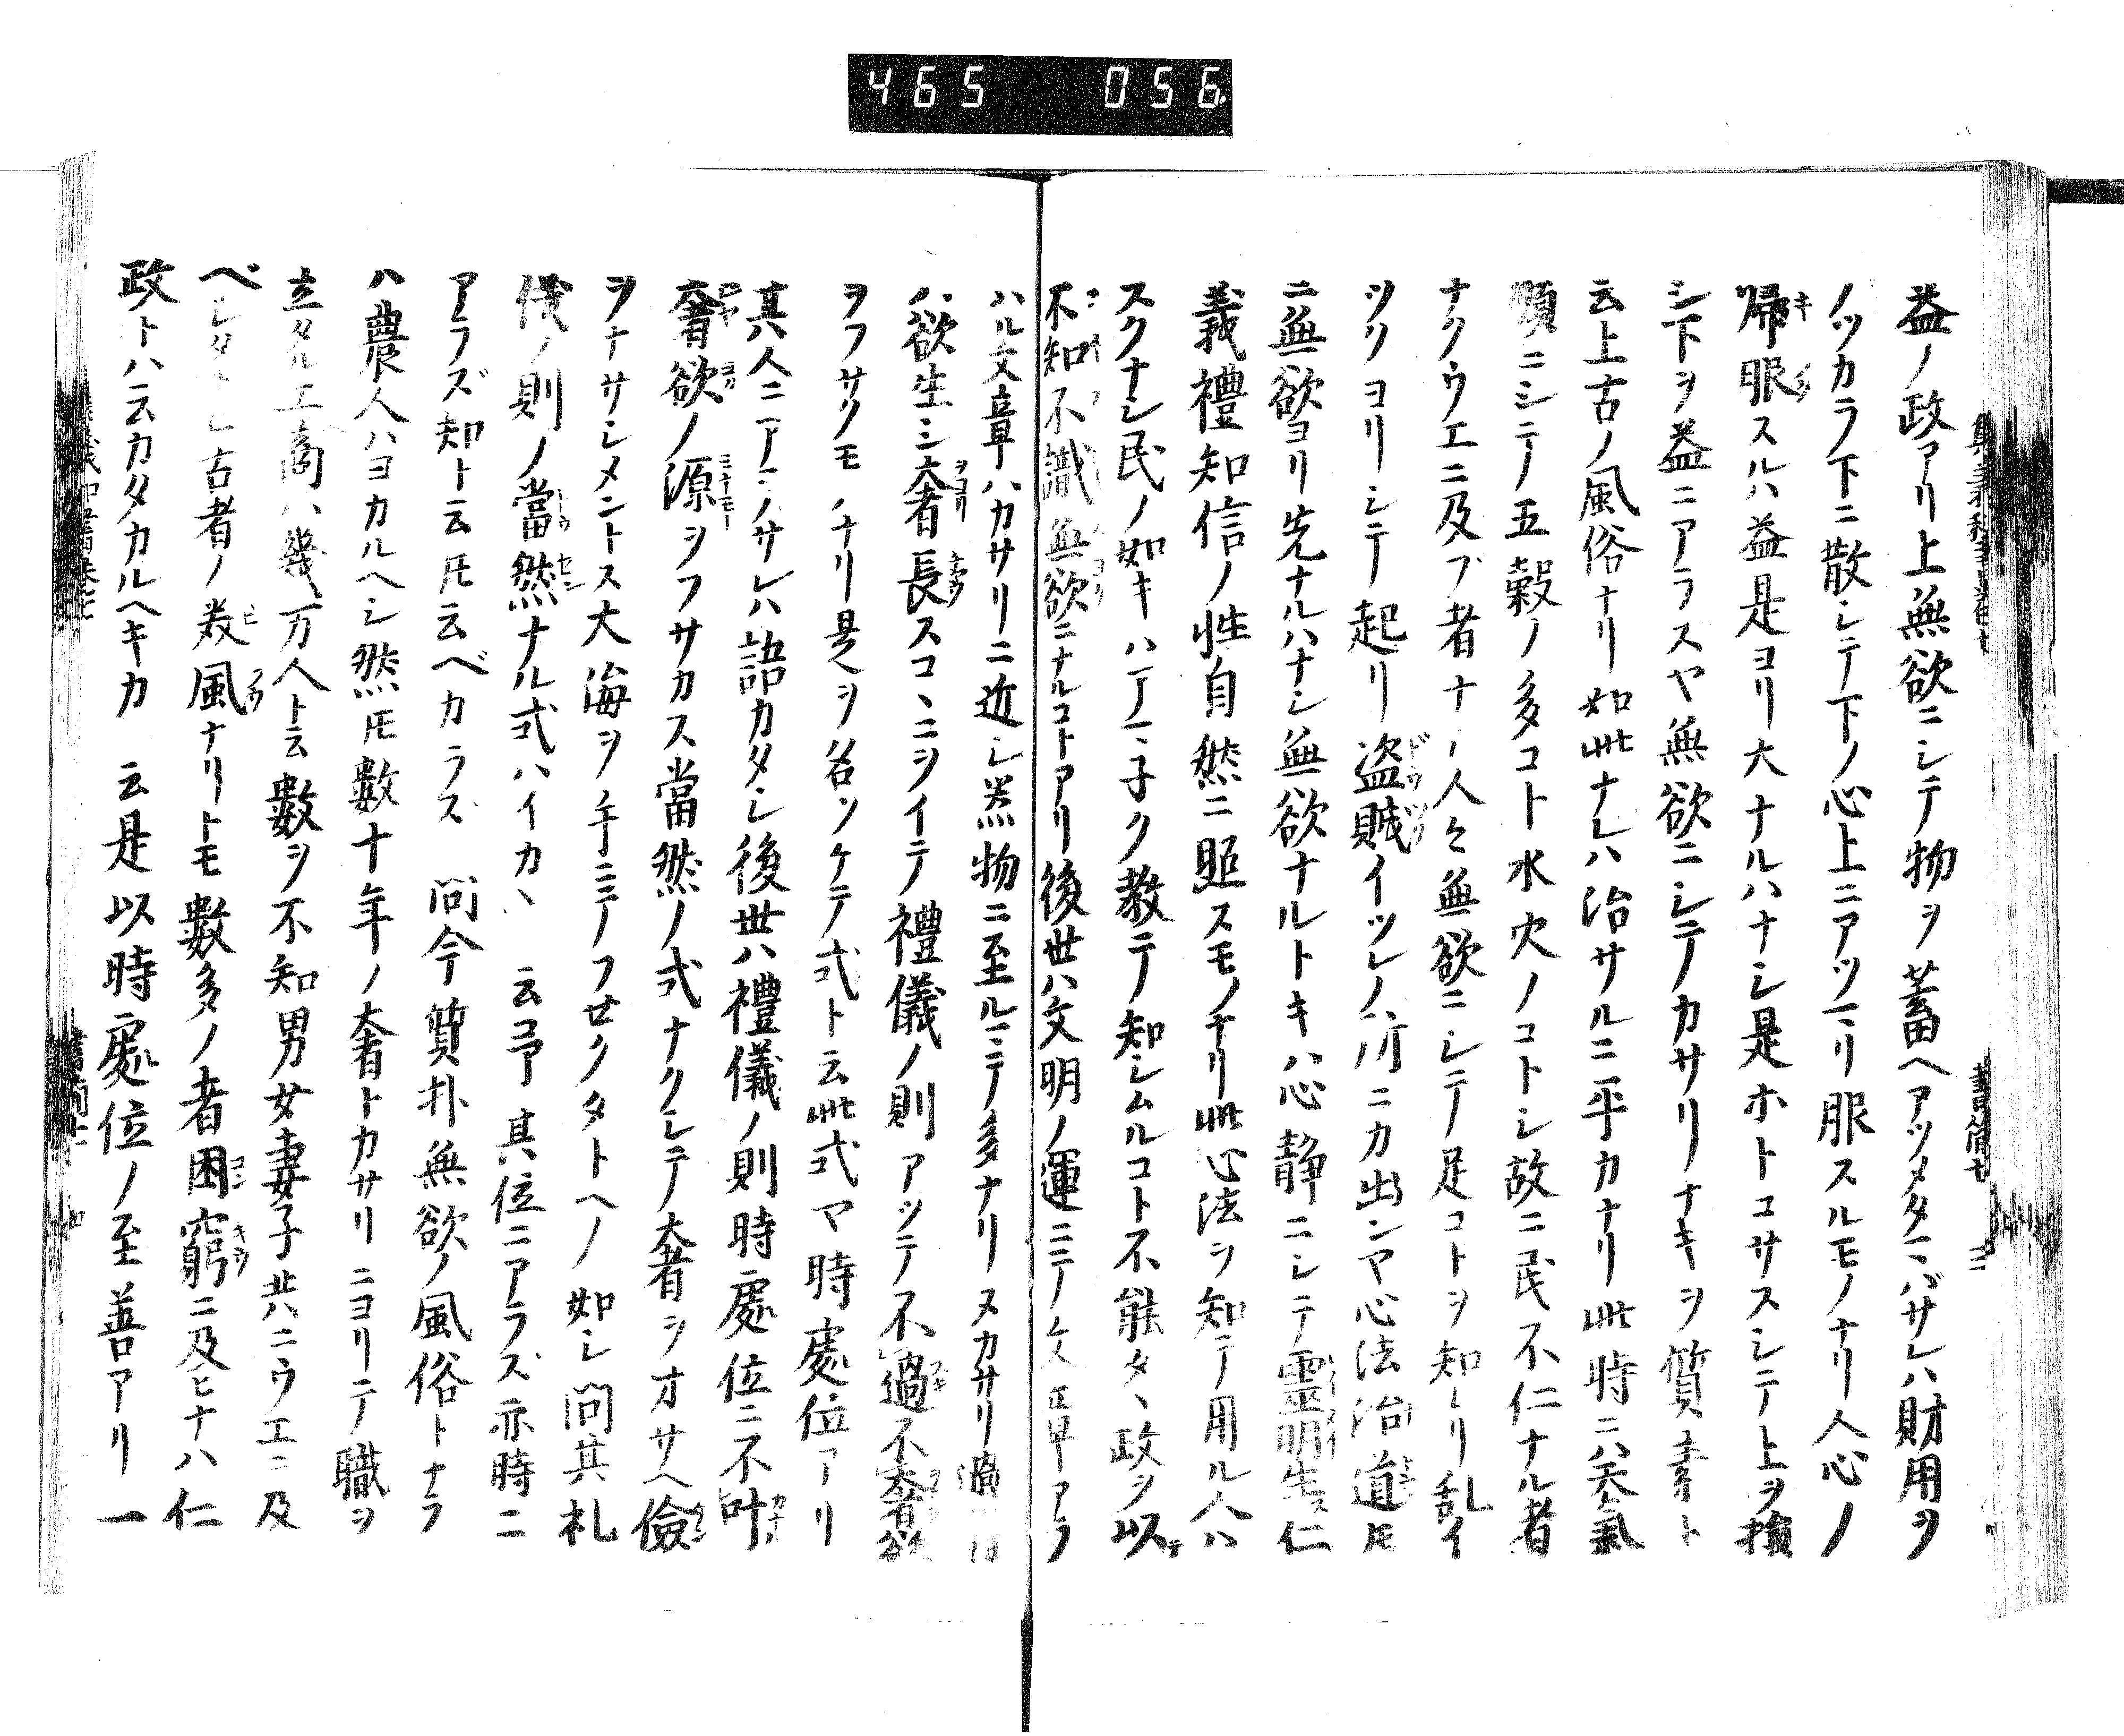 465 056
益ノ政アリ上無欲ニシテ物ヲ蓄ヘアツメタマハザレハ財用ヲ
ノツカラ下ニ散シテ下ノ心上ニアツマリ服スルモノナリ人心ノ
帰服スルハ益是ヨリ大ナルハナシ是ホトコサスシテ上ヲ損
シ下ヲ益ニアラスヤ無欲ニシテカサリナキヲ質素ト
云上古ノ風俗ナリ如此ナレハ治サルニ平カナリ此時ニハ天氣
順ニシテ五穀ノ多コト水火ノコトシ故ニ民不仁ナル者
ナクウエニ及フ者ナシ人々無欲ニシテ足コトヲ知レリ乱イ
ツクヨリシテ起リ盗賊イツレノ所ニカ出ンヤ心法治道氏
ニ無欲ヨリ先ナルハナシ無欲ナルトキハ心静ニシテ霊明生ス仁
義禮知信ノ性自然ニ照スモノナリ此心法ヲ知テ用ル人ハ
スクナシ民ノ如キハアマ子ク教テ知シムルコト不能タヽ政ヲ以テ
不知不識無欲ニナルコトアリ後世ハ文明ノ運ニテ文章アラ
ハル文章ハカサリニ近シ器物ニ至ルマテ多ナリヌカサリ過レ
ハ欲生シ奢長スコヽニヲイテ禮儀ノ則アツテ不過不奢欲
ヲフサクモノナリ是ヲ名ツケテ式ト云此式ヤ時處位アリ
其人ニアラサレハ語カタシ後世ハ禮儀ノ則時處位ニ不叶
奢欲ノ源ヲフサカス當然ノ式ナクシテ奢ヲオサヘ儉
ヲナサシメントス大海ヲ手ニテフセクタトヘノ如シ問其礼
儀ノ則ノ當然ナル式ハイカヽ 云予其位ニアラズ亦時ニ
アラズ知ト云氏云ベカラズ 問今質朴無欲ノ風俗トナラ
ハ農人ハヨカルヘシ然氏數十年ノ奢トカサリニヨリテ職ヲ
立タル工商ハ幾万人ト云數ヲ不知男女妻子共ニウエニ及
ベシタトヒ古者ノ美風ナリトモ數多ノ者困窮ニ及ヒナハ仁
政トハ云カタカルヘキカ 云是以時處位ノ至善アリ一